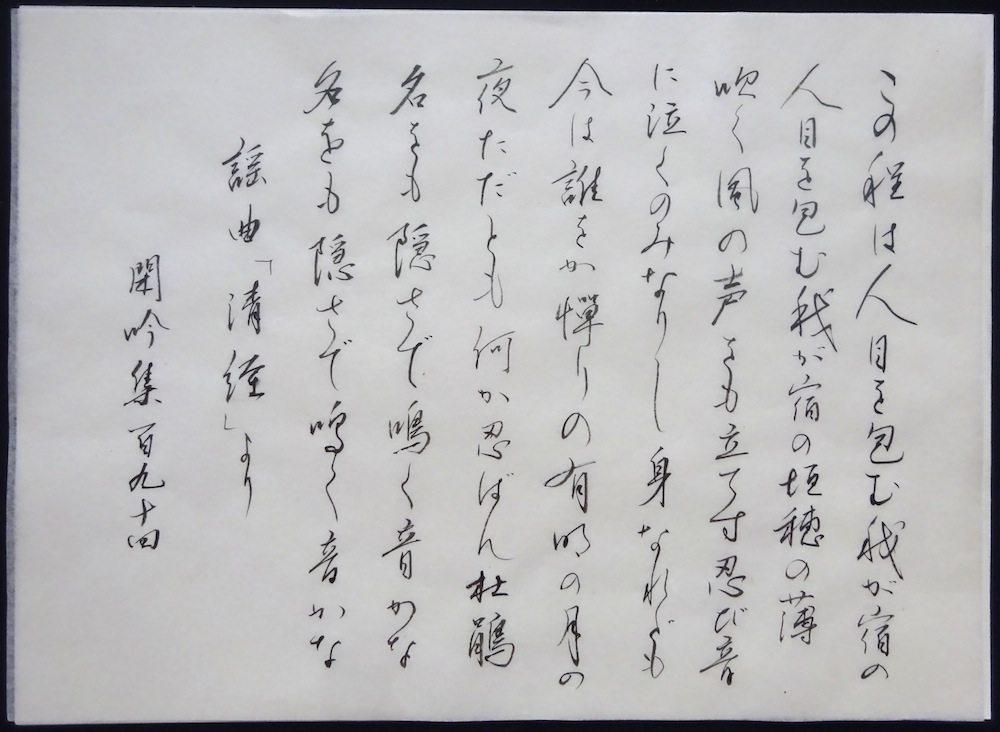 この程は人目を包む我が宿の
人目を包む我が宿の垣穂の薄
吹く風の声をも立てず忍び音
に泣くのみなりし身なれども
今は誰をか憚りの有明の月の
夜ただとも何か忍ばん杜鵑
名をも隠さで鳴く音かな
名をも隠さで鳴く音かな
謡曲「清経」より
閑吟集百九十四